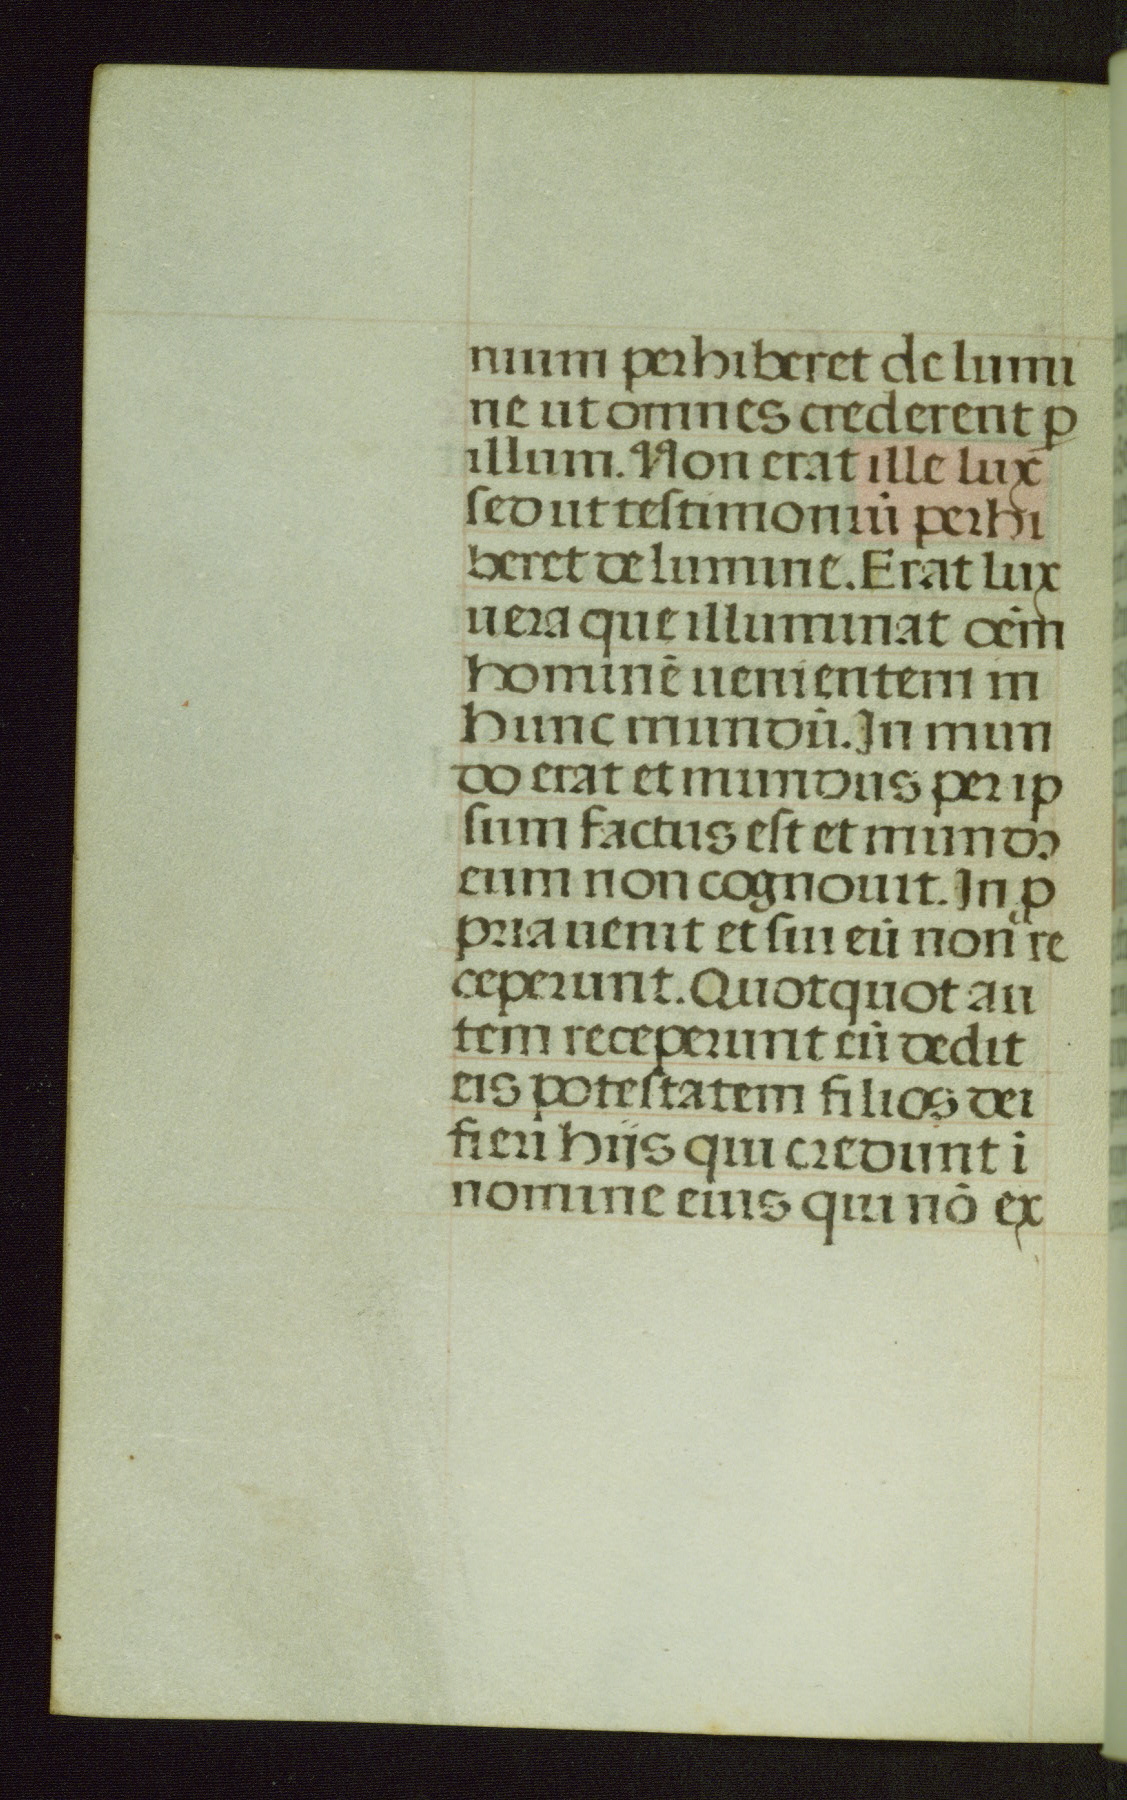 nium perhiberet de lumi
ne ut omnes crederent ꝑ
illum. Non erat ille lux
sed ut testimoniū perhi
beret de lumine. Erat lux
uera que illuminat oēm
hominē uenientem in
hunc mundū. In mun
do erat et mundus per ip
sum factus est et mundꝰ
eum non cognouit. In ꝓ
pria uenit et sui eū non re
ceperunt. Quotquot au
tem receperunt eū dedit
eis potestatem filios dei
fieri hijs qui credunt ī
nomine eius qui nō ex